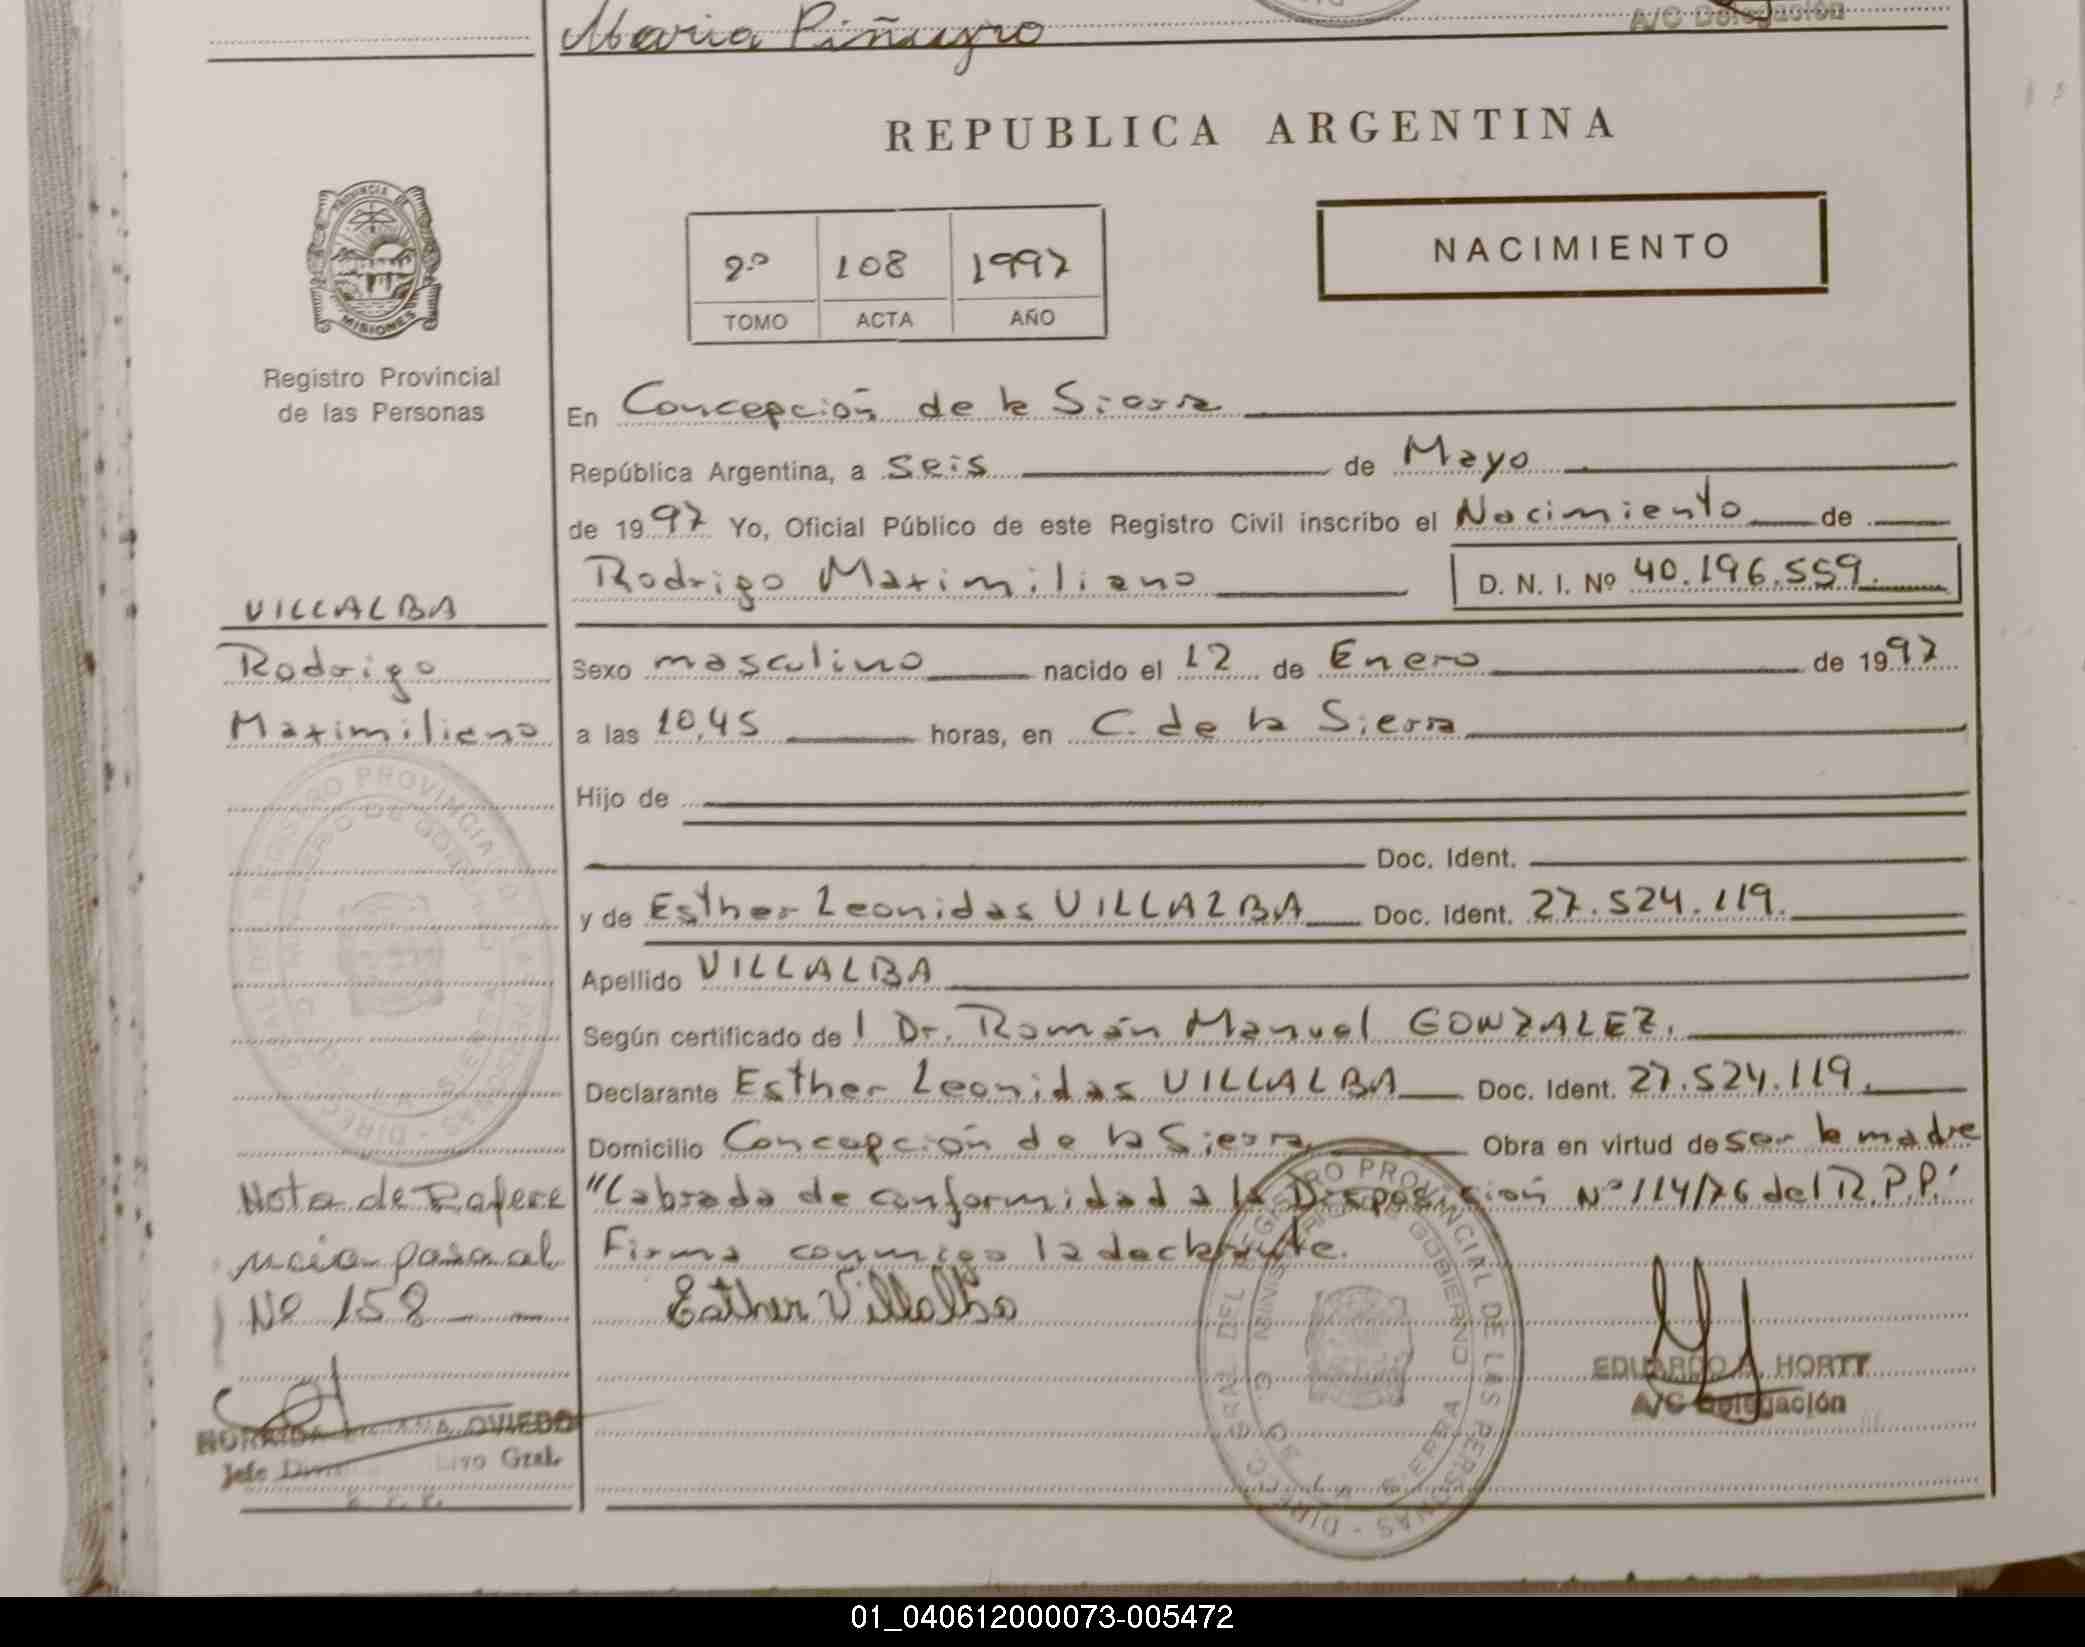 Maria Piñeyro
A/C Delegación
REPUBLICA ARGENTINA
PROVINCIA DE
MISIONES
Registro Provincial
de las Personas
2.º 108 1997
TOMO ACTA AÑO
NACIMIENTO
En Concepción de la Sierra
República Argentina, a seis de Mayo
de 1997 Yo, Oficial Público de este Registro Civil inscribo el Nacimiento de
Rodrigo Maximiliano D. N. I. Nº 40.196.559.
VILLALBA
Rodrigo
Maximiliano
Sexo masculino nacido el 12 de Enero de 1997
a las 10,45 horas, en C. de la Sierra
Hijo de
Doc. Ident.
y de Esther Leonidas VILLALBA Doc. Ident. 27.524.119.
Apellido VILLALBA
Según certificado de l Dr. Román Manuel GONZALEZ.
Declarante Esther Leonidas VILLALBA Doc. Ident. 27.524.119.
Domicilio Concepción de la Sierra Obra en virtud de ser la madre
"Labrada de conformidad a la Disposición Nº 114/76 del R.P.P."
Firma conmigo la declarante.
Esther Villalba
Nota de Refere
ncia pasa al
Nº 158
EDUARDO A. HORTT
A/C Delegación
OVIEDO
Jefe
Gral.
DIREC. GRAL. DEL REGISTRO PROVINCIAL DE LAS PERSONAS
MINISTERIO DE GOBIERNO
C. DE LA SIERRA
01_040612000073-005472